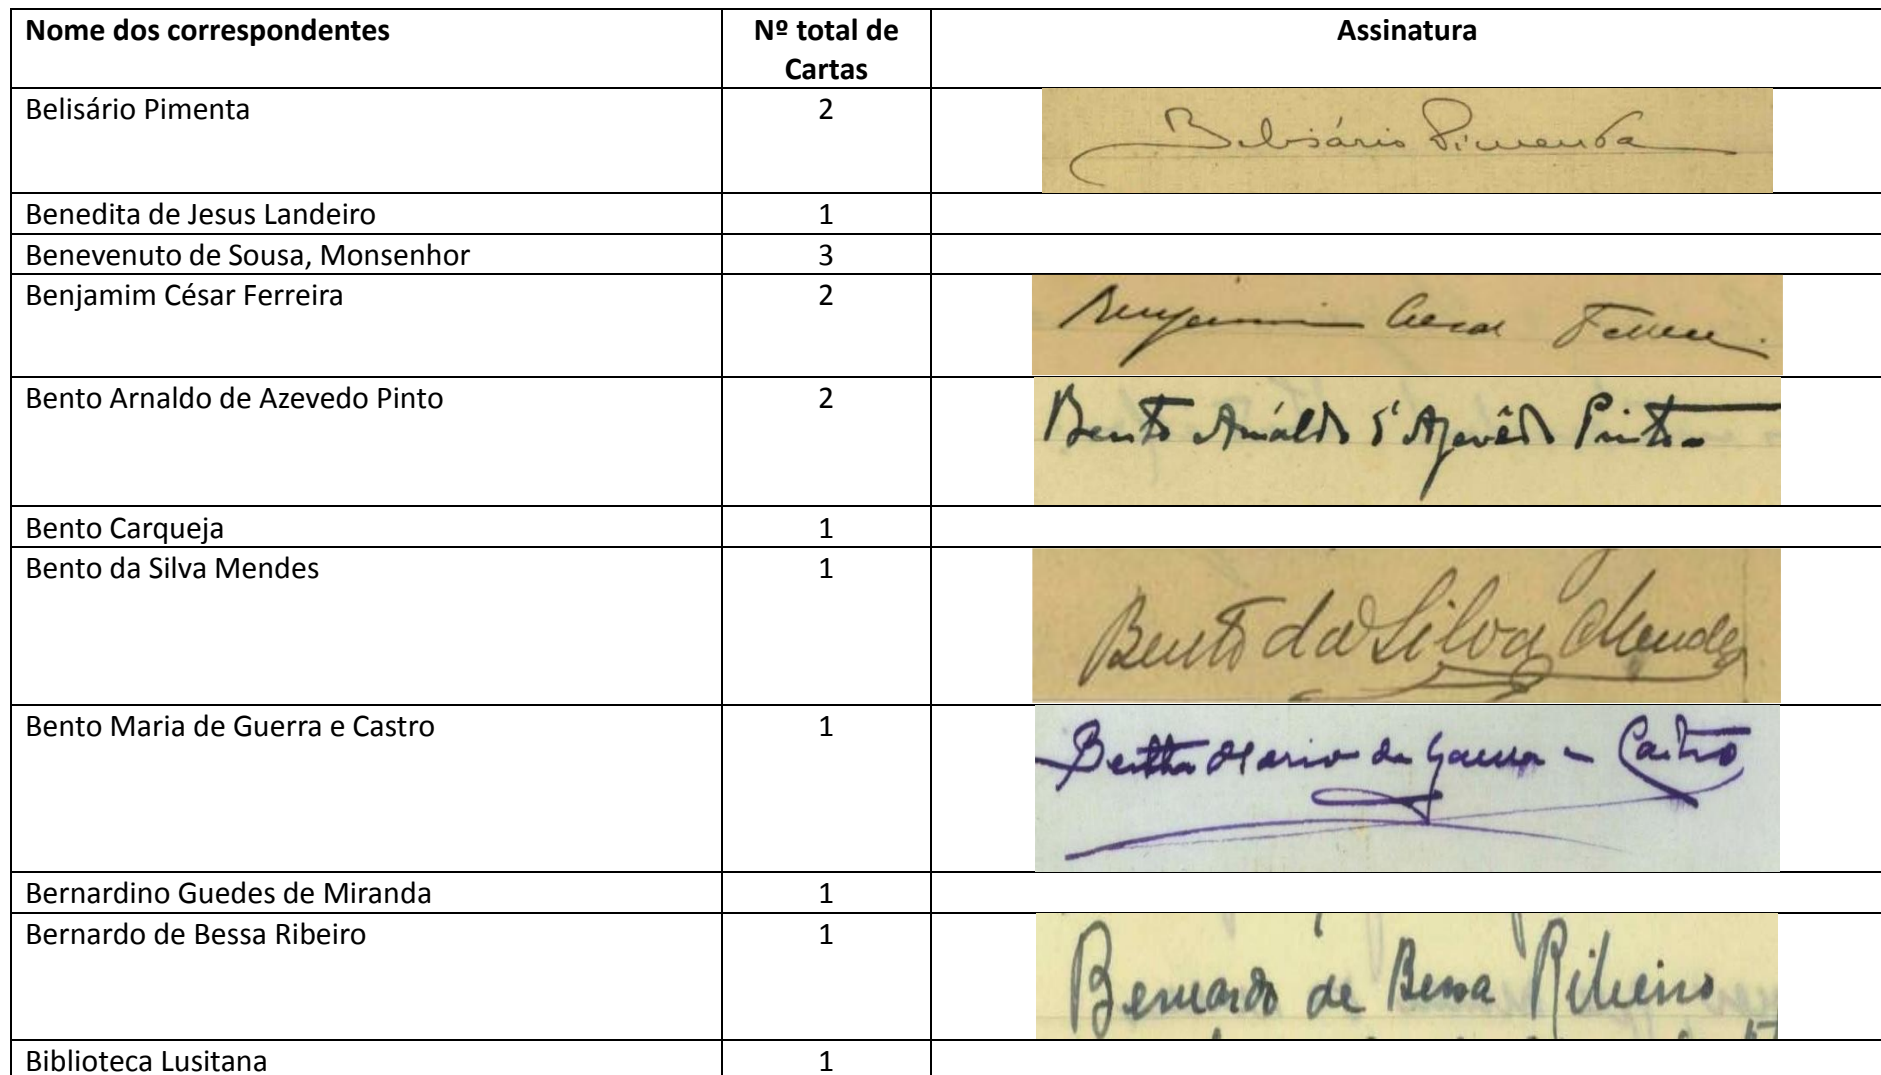 Nome dos correspondentes Nº total de Assinatura
Cartas
Belisário Pimenta 2 Belisário Pimenta
Benedita de Jesus Landeiro 1
Benevenuto de Sousa, Monsenhor 3
Benjamim César Ferreira 2 Benjamim Cesar Ferreira
Bento Arnaldo de Azevedo Pinto 2 Bento Arnáldo d'Azevêdo Pinto
Bento Carqueja 1
Bento da Silva Mendes 1 Bento da Silva Mendes
Bento Maria de Guerra e Castro 1 Maria da Guerra e Castro
Bernardino Guedes de Miranda 1
Bernardo de Bessa Ribeiro 1 Bernardo de Bessa Ribeiro
Biblioteca Lusitana 1